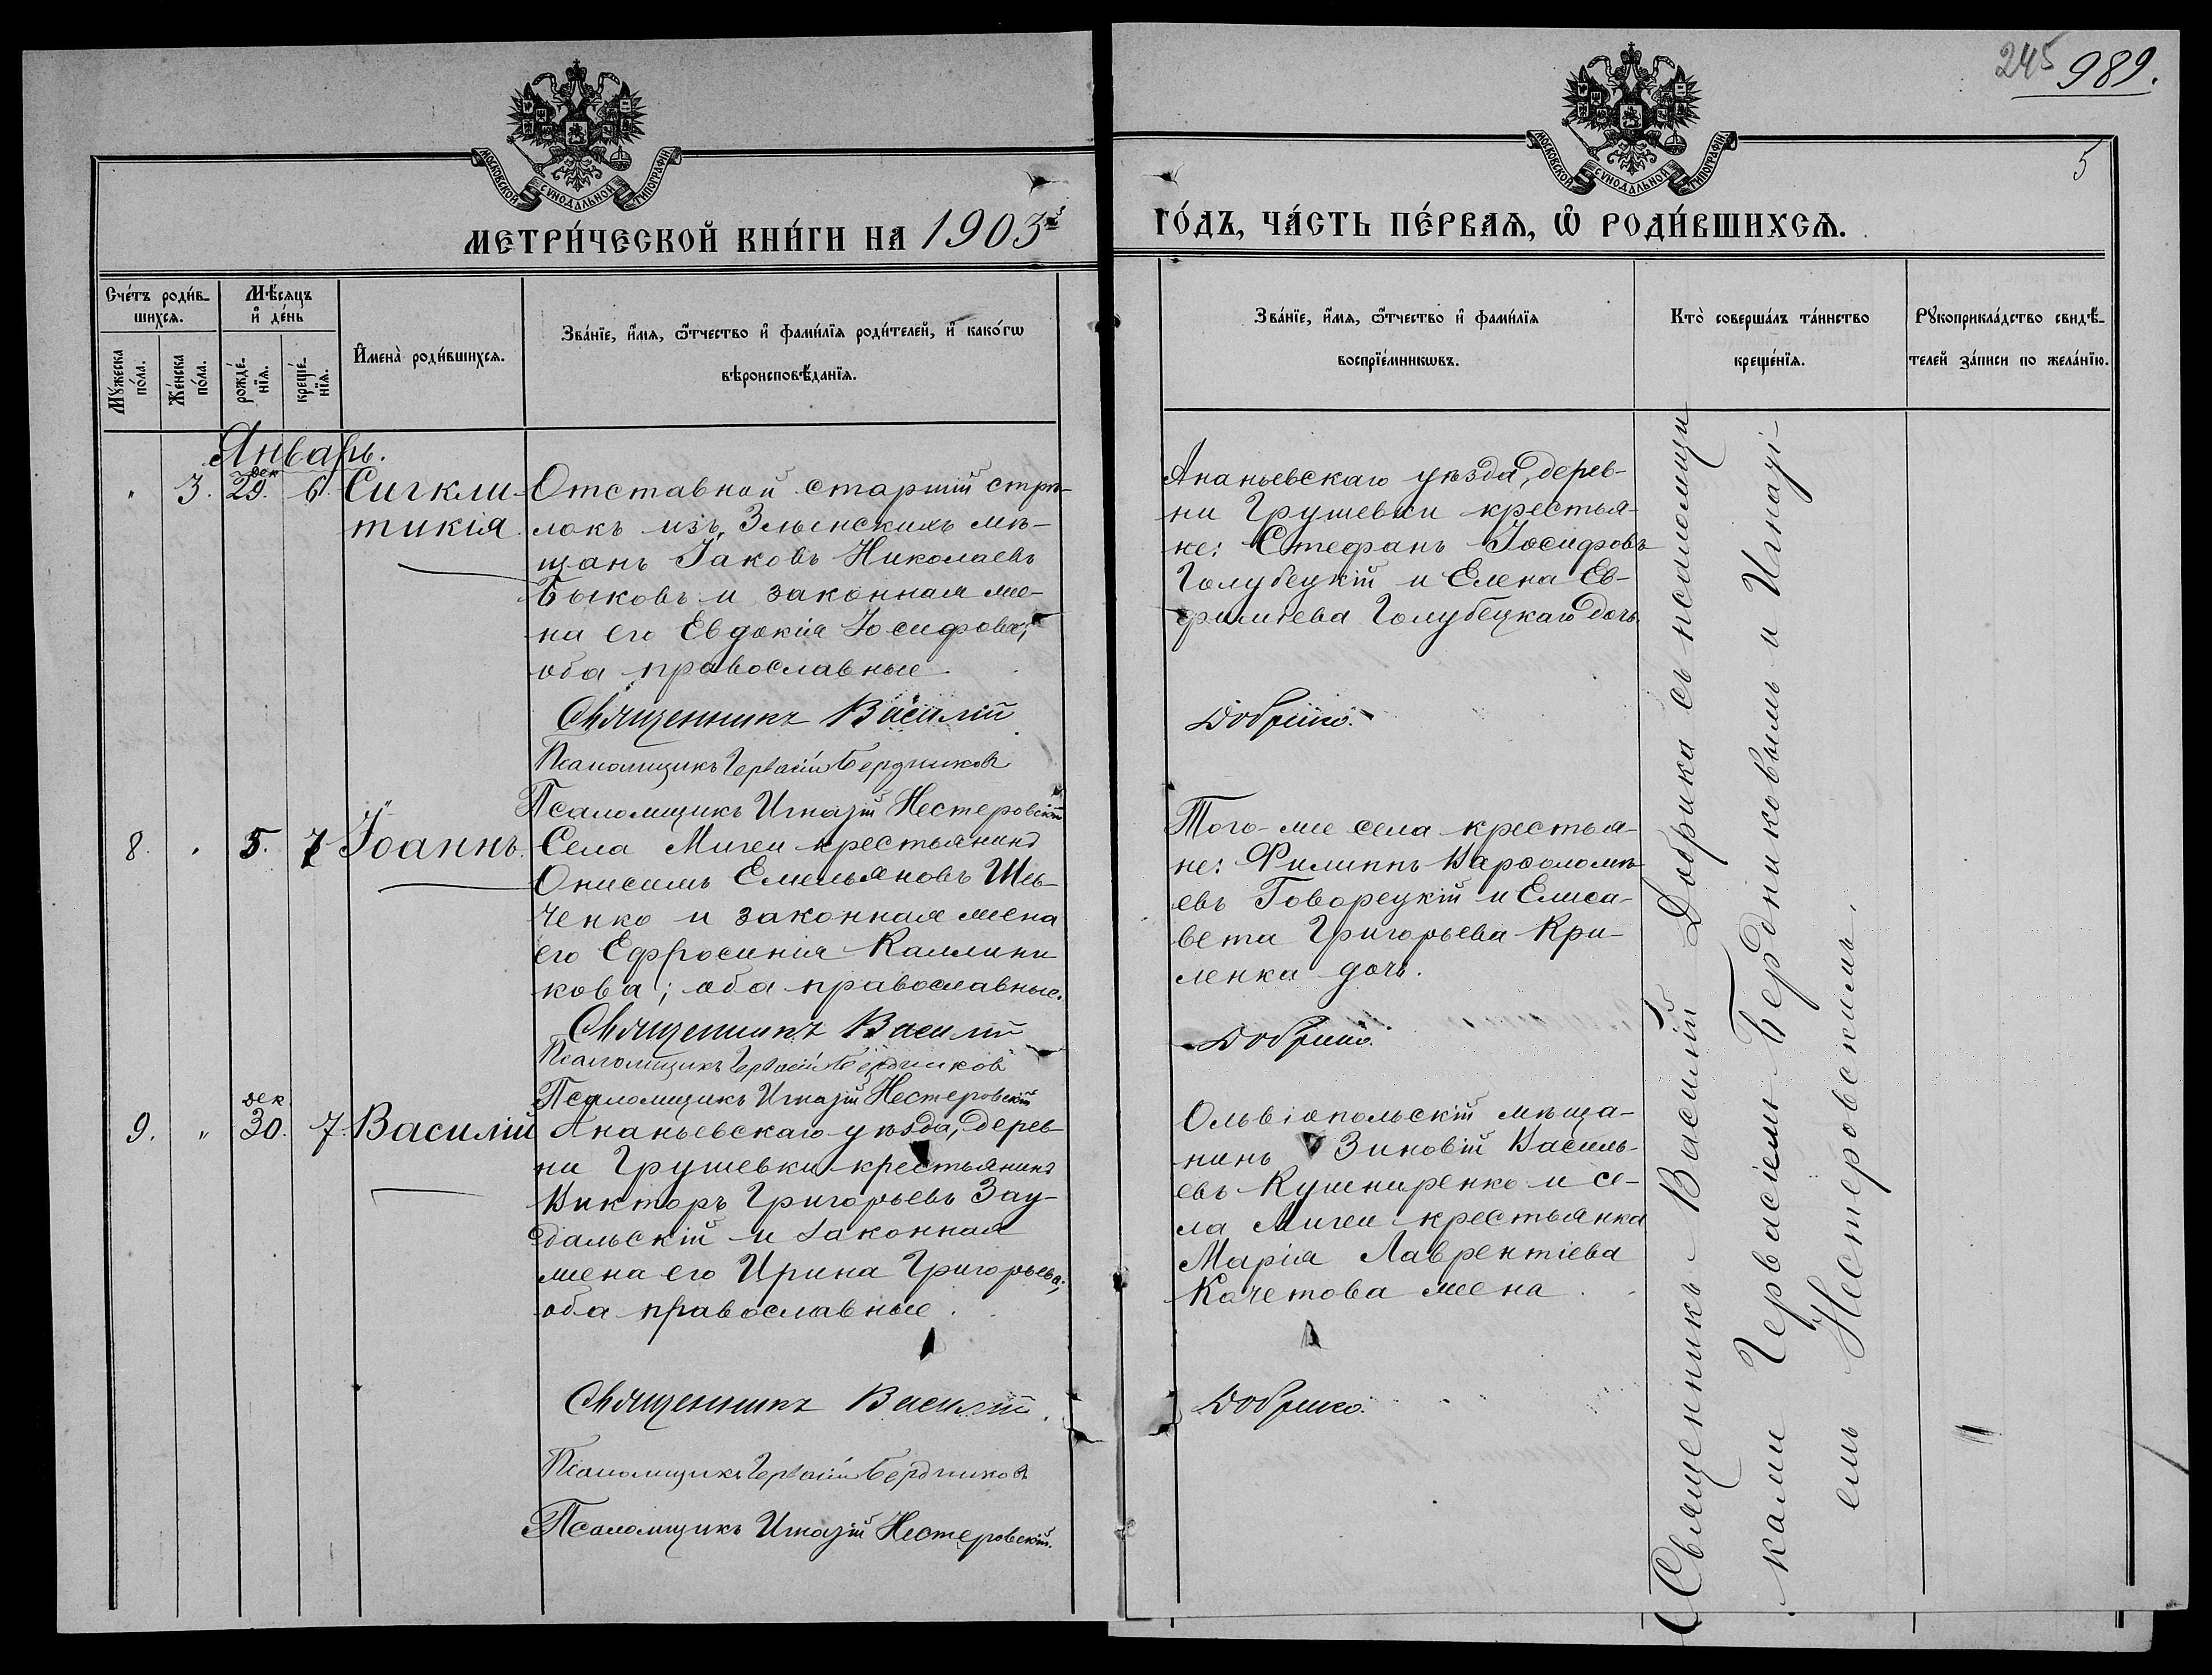 245
989.
5
МОСКОВСКОЙ СУНОДАЛЬНОЙ ТИПОГРАФІИ
МОСКОВСКОЙ СУНОДАЛЬНОЙ ТИПОГРАФІИ
МЕТРИ́ЧЕСКОЙ КНИ́ГИ НА 1903й
ГО́ДЪ, ЧА́СТЬ ПЕ́РВАѦ, Ѡ҆ РОДИ́ВШИХСѦ.
Сче́тъ роди́в-
шихсѧ.
Мꙋ́жеска по́ла.
Же́нска по́ла.
Мѣ́сѧцъ
и҆ де́нь
рожде́-
нїѧ.
креще́-
нїѧ.
И҆мена̀ роди́вшихсѧ.
Зва́нїе, и҆́мѧ, ѻ҆́тчество и҆ фами́лїѧ роди́телей, и҆ како́гѡ
вѣроисповѣ́данїѧ.
Зва́нїе, и҆́мѧ, ѻ҆́тчество и҆ фами́лїѧ
воспрїе́мникѡвъ.
Кто̀ соверша́лъ та́инство
креще́нїѧ.
Рꙋкоприкла́дство свидѣ́-
телей за́писи по жела́нїю.
Январь.
" 3. дек 29. 6. Сигкли-
тикія.
Отставной старшій стрѣ-
локъ изъ Злынскихъ мѣ-
щанъ Іаковъ Николаевъ
Быковъ и законная же-
на его Евдокія Іосифова;
оба православные.
Священникъ Василій
Псаломщикъ Гервасій Бердников
Псаломщикъ Игнатій Нестеровскій
Ананьевскаго уѣзда, дерев-
ни Грушевки крестья-
не: Стефанъ Іосифовъ
Голубецкій и Елена Ев-
фиміева Голубецкаго дочь.
Добрико.
8. " 5. 7 Іоаннъ.
Села Мигеи крестьянинъ
Онисимъ Емельяновъ Шев-
ченко и законная жена
его Ефросинія Каллини-
кова; оба православные.
Священникъ Василій
Псаломщикъ Гервасій Бердников
Псаломщикъ Игнатій Нестеровскій
Того-же села крестья-
не: Филиппъ Варѳоломѣ-
евъ Говорецкій и Елиса-
вета Григорьева Кри-
ленка дочь.
Добрико.
9. " дек 30. 7. Василій
Ананьевскаго уѣзда, дерев-
ни Грушевки крестьянинъ
Викторъ Григорьевъ Зау-
дальскій и законная
жена его Ирина Григорьева;
оба православные.
Священникъ Василій
Псаломщикъ Гервасій Бердников
Псаломщикъ Игнатій Нестеровскій.
Ольвіопольскій мѣща-
нинъ Зиновій Василь-
евъ Кушниренко и се-
ла Мигеи крестьянка
Марія Лаврентіева
Кочетова жена.
Добрико.
Священникъ Василій Добрика съ псаломщи-
ками Гервасіемъ Бердниковымъ и Игнаті-
емъ Нестеровскимъ.